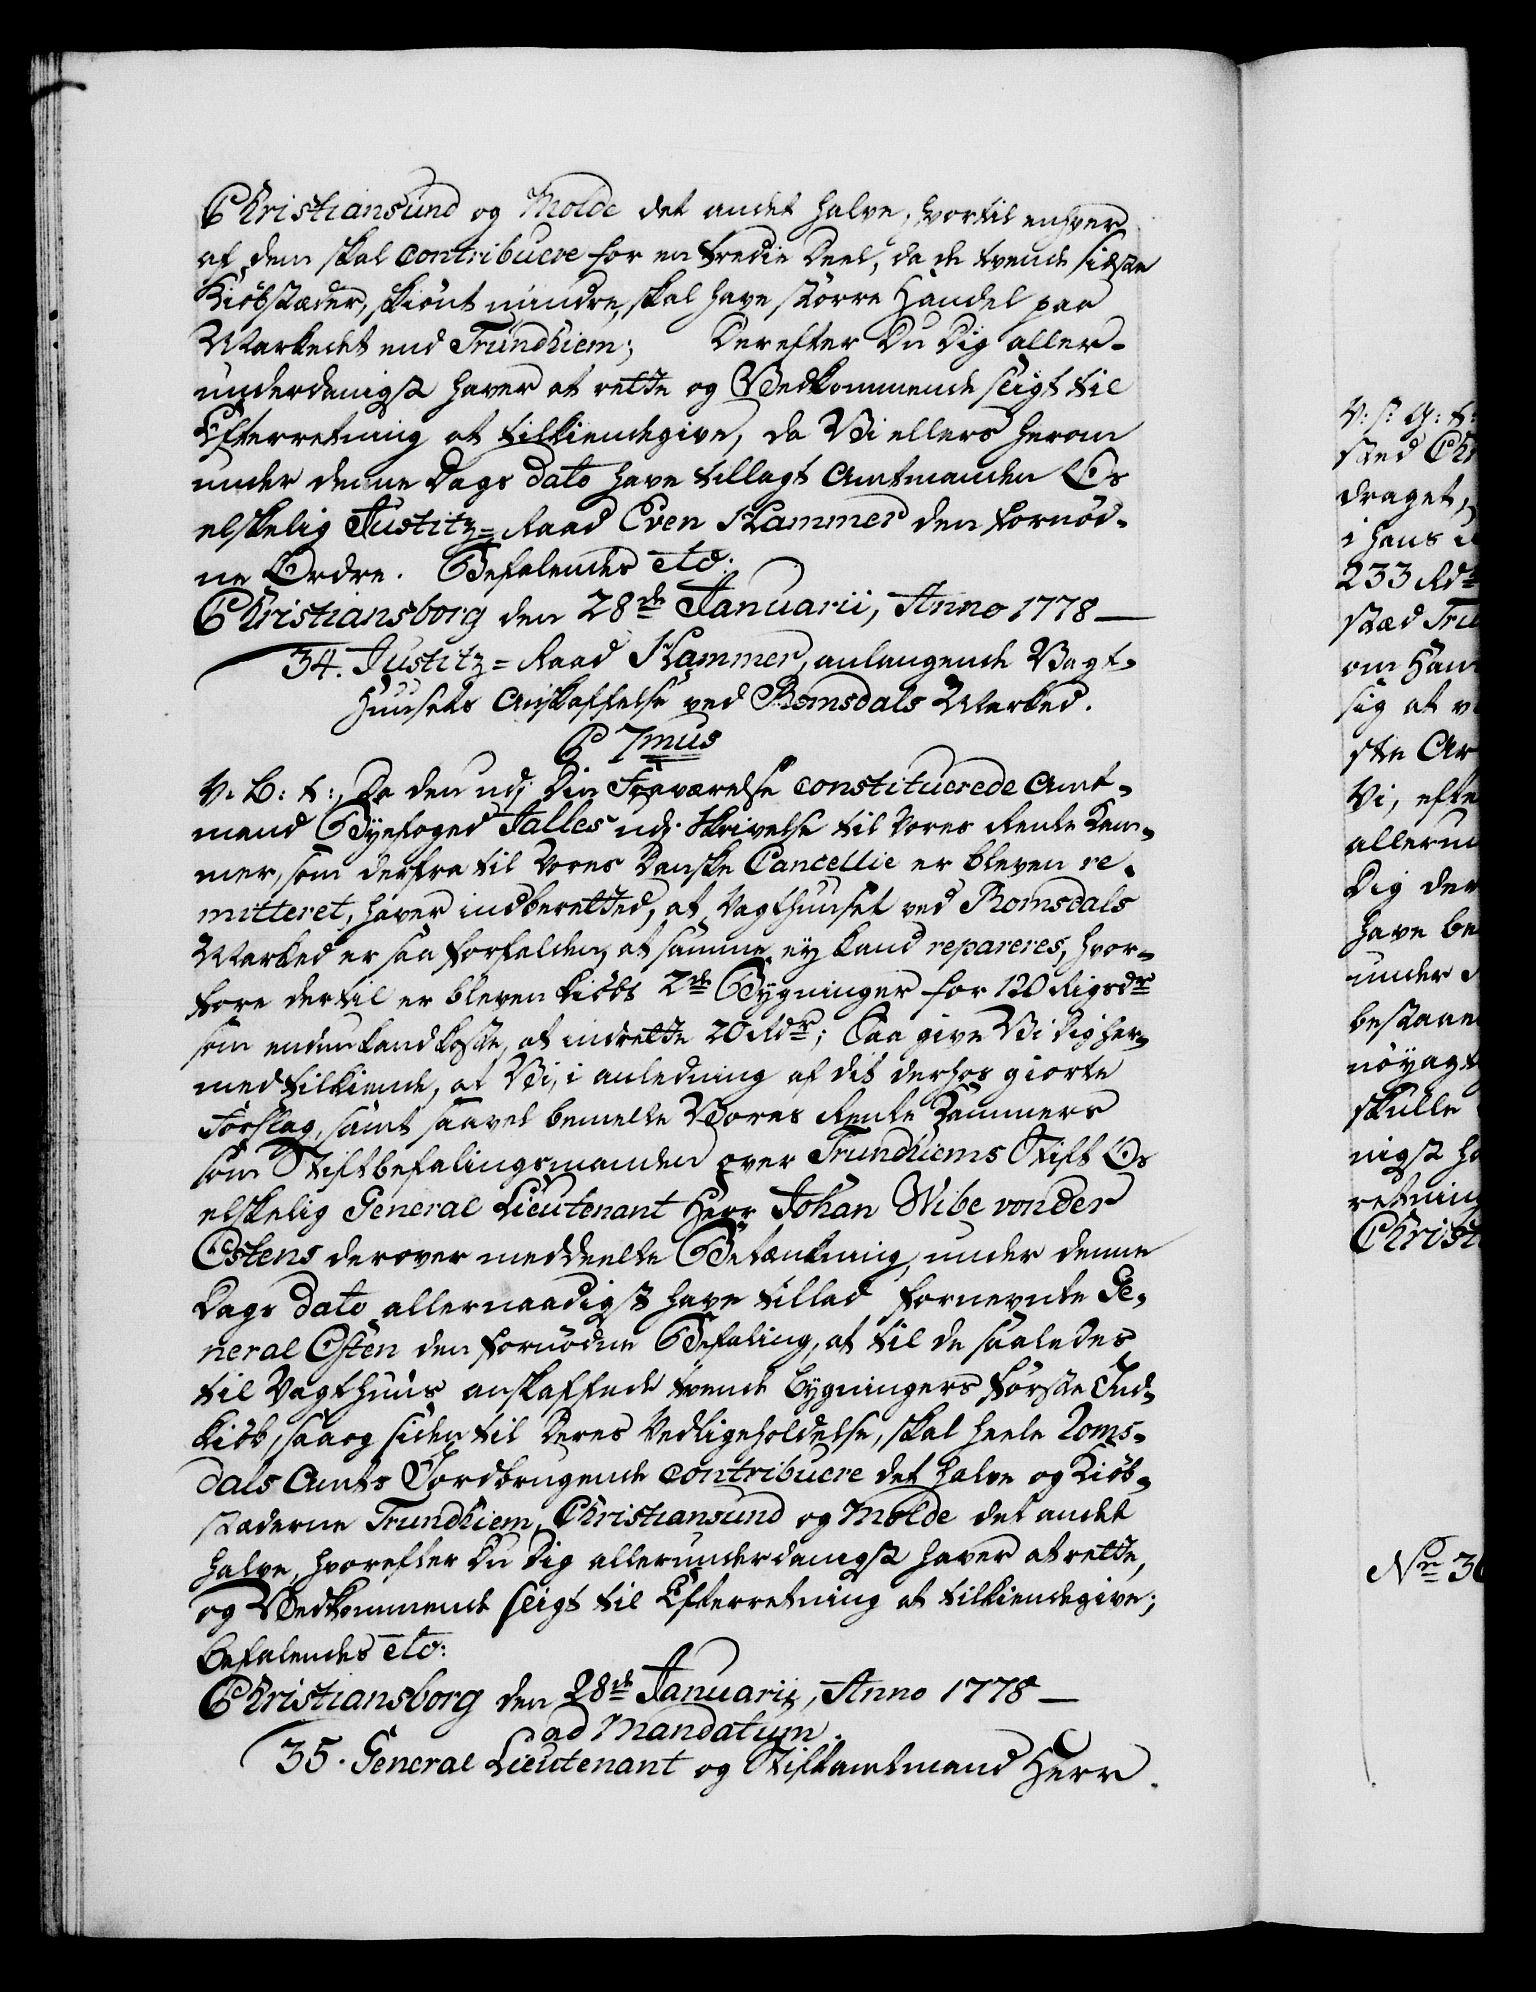 Christiansund og Molde det andet halve, hvortil enhver
af dem skal contribuere for en tredie Deel, da de tvende sidste
Kiöbstæder, skiönt mindre, skal have större Handel paa
Markedet end Trundhiem; Derefter Du Dig aller-
underdanigst haver at rette og Vedkommende sligt til
Efterretning at tilkiendegive, da Vi ellers herom
under denne Dags dato have tillagt Amtmanden Os
elskelig Justitz-Raad Even Hammer den fornöd-
ne Ordre. Befalendes etc:
Christiansborg den 28de Januarii, Anno 1778 —
34. Justitz-Raad Hammer, anlangende Vagt-
Huusets Anskaffelse ved Romsdals Marked.
C 7mus
V. B: t:, Da den udj Din Fraværelse constituerede Amt-
mand Byefoged Falles udj Skrivelse til Vores Rente Kam-
mer, som derfra til Vores Danske Cancellie er bleven re-
mitteret, haver indberetted, at Vagthuuset ved Romsdals
Marked er saa forfalden, at samme ey kand repareres, hvor-
fore dertil er bleven kiöbt 2de Bygninger for 120 Rigsdr
som endnu kand koste, at indrette 20 Rdr; Saa give Vi Dig her-
med tilkiende, at Vi, i anledning af dit derhos giorte
Forslag, samt saavel bemelte Vores Rente Kammers
som Stiftbefalingsmanden over Trundhiems Stift Os
elskelig General Lieutenant Herr Johan Wibe von der
Ostens derover meddeelte Betænkning, under denne
Dags dato allernaadigst have tillad fornevnte Ge-
neral Osten den fornödne Befaling, at til de saaledes
til Vagthuus anskaffede tvende Bygningers förste Ind-
kiöb, saa og siden til Deres Vedligeholdelse, skal heele Roms-
dals Amts Jordbrugende contribuere det halve og Kiöb-
stæderne Trundhiem, Christiansund og Molde det andet
halve, hvorefter Du Dig allerunderdanigst haver at rette,
og Vedkommende sligt til Efterretning at tilkiendegive;
befalendes etc:
Christiansborg den 28de Januarii, Anno 1778 —
ad Mandatum.
35. General Lieutenant og Stiftamtmand Herr
V: s: G: t:
sted Chr
draget,
i hans
233 Rd
stæd Tru
om Ham
sig at v
ste Ar
Vi, efte
allerun
Dig der
have be
under
bestaae
nöyagt
skulle
nigst ha
retning
Christ
No 36